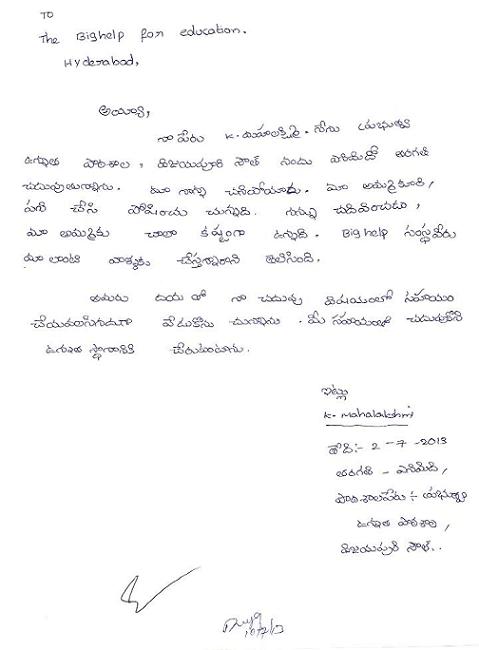 TO
The Bighelp for education.
Hyderabad,
అయ్యా,
నా పేరు K. మహాలక్ష్మి. నేను ప్రభుత్వ
ఉన్నత పాఠశాల, విజయపురి సౌత్ నందు ఎనిమిదో తరగతి
చదువుతున్నాను. మా నాన్న చనిపోయాడు. మా అమ్మకూలి,
పని చేసి పోషించు చున్నాది. నన్ను చదివించడం,
మా అమ్మకు చాలా కష్టంగా ఉన్నాది. Big help సంస్థవేరు
మాలాంటి వాళ్ళకు చేస్తున్నారని తెలిసింది.
తమరు దయ తో నా చదువు విషయంలో సహాయం
చేయవలసినదిగా వేడుకొను చున్నాను. మీ సహాయంతో చదువుకొని
ఉన్నత స్థానానికి చేరుకుంటాను.
ఇట్లు
K. Mahalakshmi
తేది:- 2-7-2013
తరగతి - ఎనిమిది,
పాఠశాలపేరు ÷ ప్రభుత్వ
ఉన్నత పాఠశాల,
విజయపురి సౌత్..